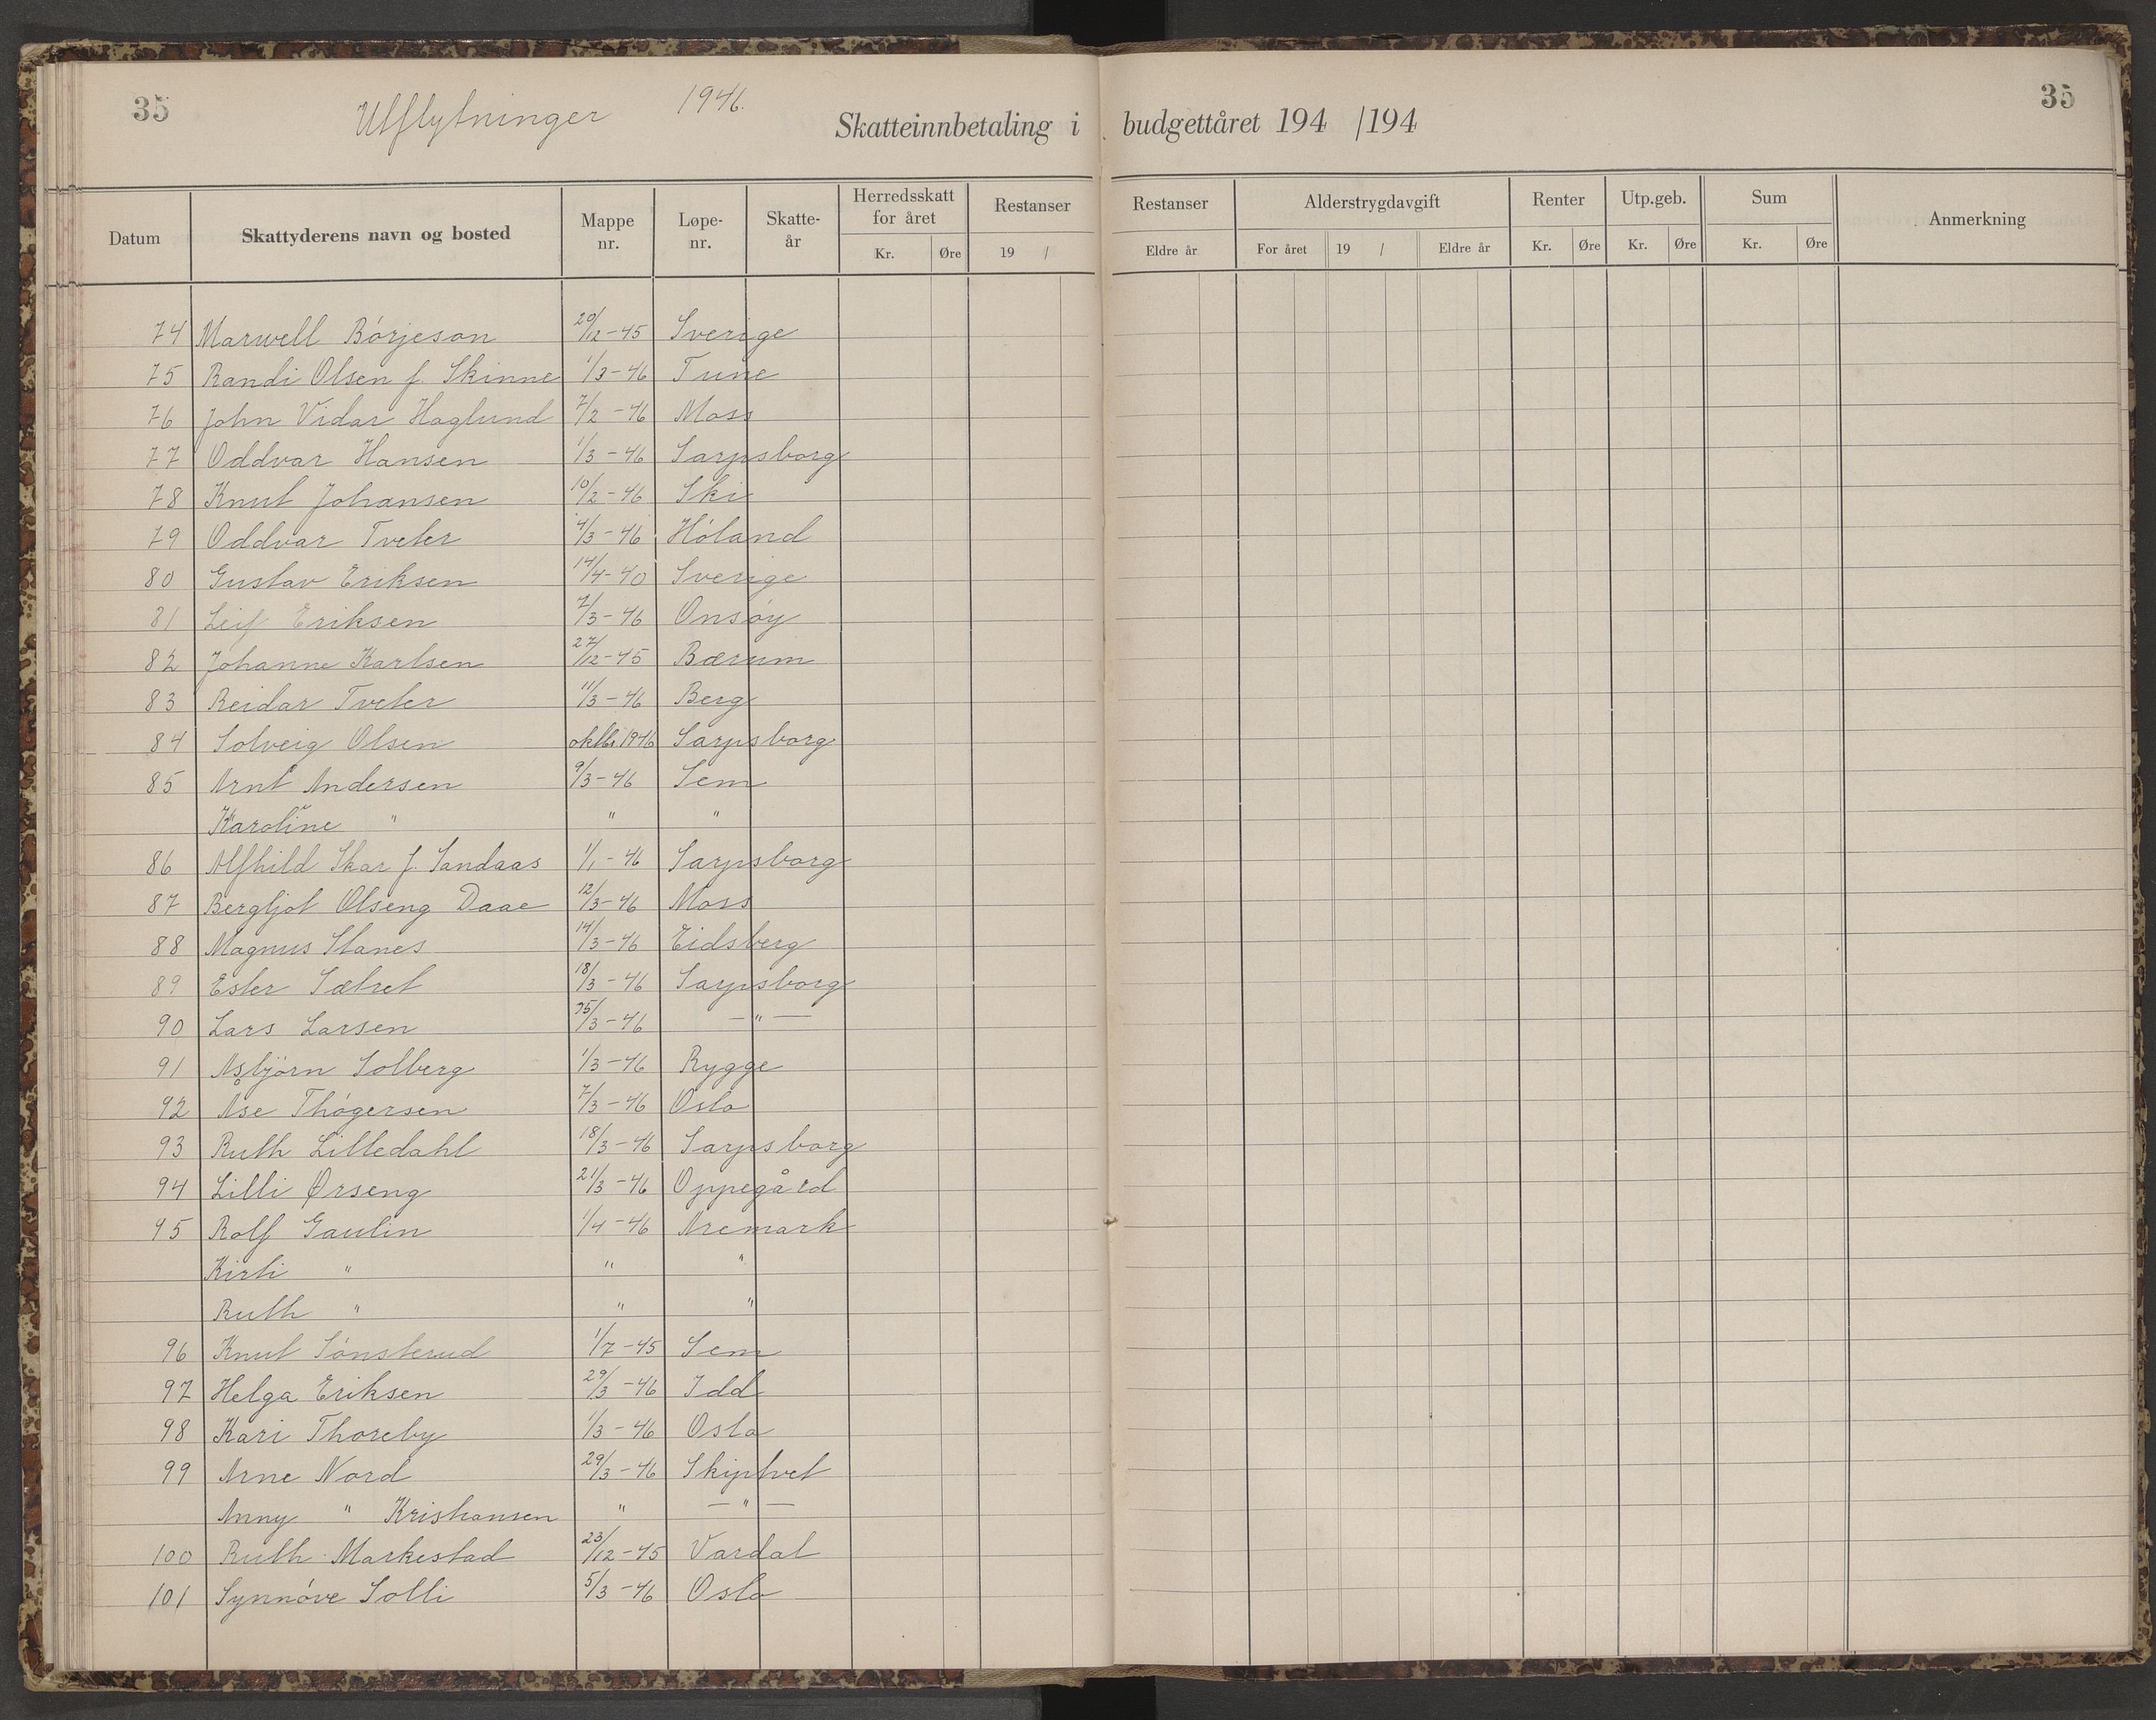 35 Utflytninger 1946. Skatteinnbetaling i budgettåret 194 /194 35
Datum Skattyderens navn og bosted Mappe nr. Løpe-nr. Skatte-år Herredsskatt for året Restanser Restanser Alderstrygdavgift Renter Utp.geb. Sum Anmerkning
Kr. Øre 19 / Eldre år For året 19 / Eldre år Kr. Øre Kr. Øre Kr. Øre
74 Marwell Börjeson 20/12-45 Sverige
75 Randi Olsen f. Skinne 1/3-46 Tune
76 John Vidar Haglund 7/2-46 Moss
77 Oddvar Hansen 1/3-46 Sarpsborg
78 Knut Johansen 10/2-46 Ski
79 Oddvar Tveter 4/3-46 Hóland
80 Gustav Eriksen 14/4-40 Sverige
81 Leif Eriksen 7/3-46 Onsóy
82 Johanne Karlsen 27/12-45 Bærum
83 Reidar Tveter 11/3-46 Berg
84 Solveig Olsen oktbr. 1946 Sarpsborg
85 Arnt Andersen 9/3-46 Sem
Karoline " " "
86 Alfhild Skar f. Sandaas 1/1-46 Sarpsborg
87 Bergljot Olseng Daae 12/3-46 Moss
88 Magnus Stanes 14/3-46 Eidsberg
89 Ester Sætret 18/3-46 Sarpsborg
90 Lars Larsen /3-46 — " —
91 Asbjörn Solberg 1/3-46 Rygge
92 Åse Thógersen 7/3-46 Oslo
93 Ruth Lilledahl 18/3-46 Sarpsborg
94 Lilli Ørseng 21/3-46 Oppegård
95 Rolf Gaulin 1/4-46 Aremark
Kirsti " " "
Ruth " " "
96 Knut Sónsterud 1/7-45 Sem
97 Helga Eriksen 29/3-46 Idd
98 Kari Thoreby 1/3-46 Oslo
99 Arne Nord 29/3-46 Skiptvet
Anny " Kristiansen " — " —
100 Ruth Markestad 23/12-45 Vardal
101 Synnóve Solli 5/3-46 Oslo